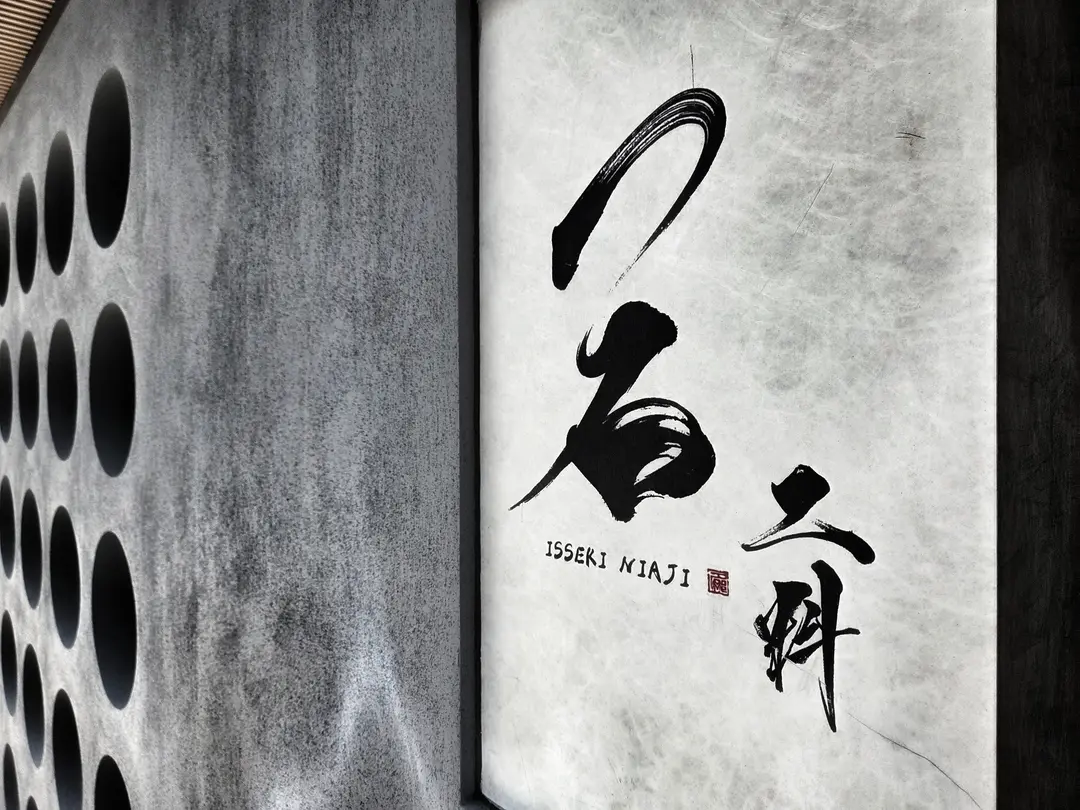 一石
二料
ISSEKI NIAJI